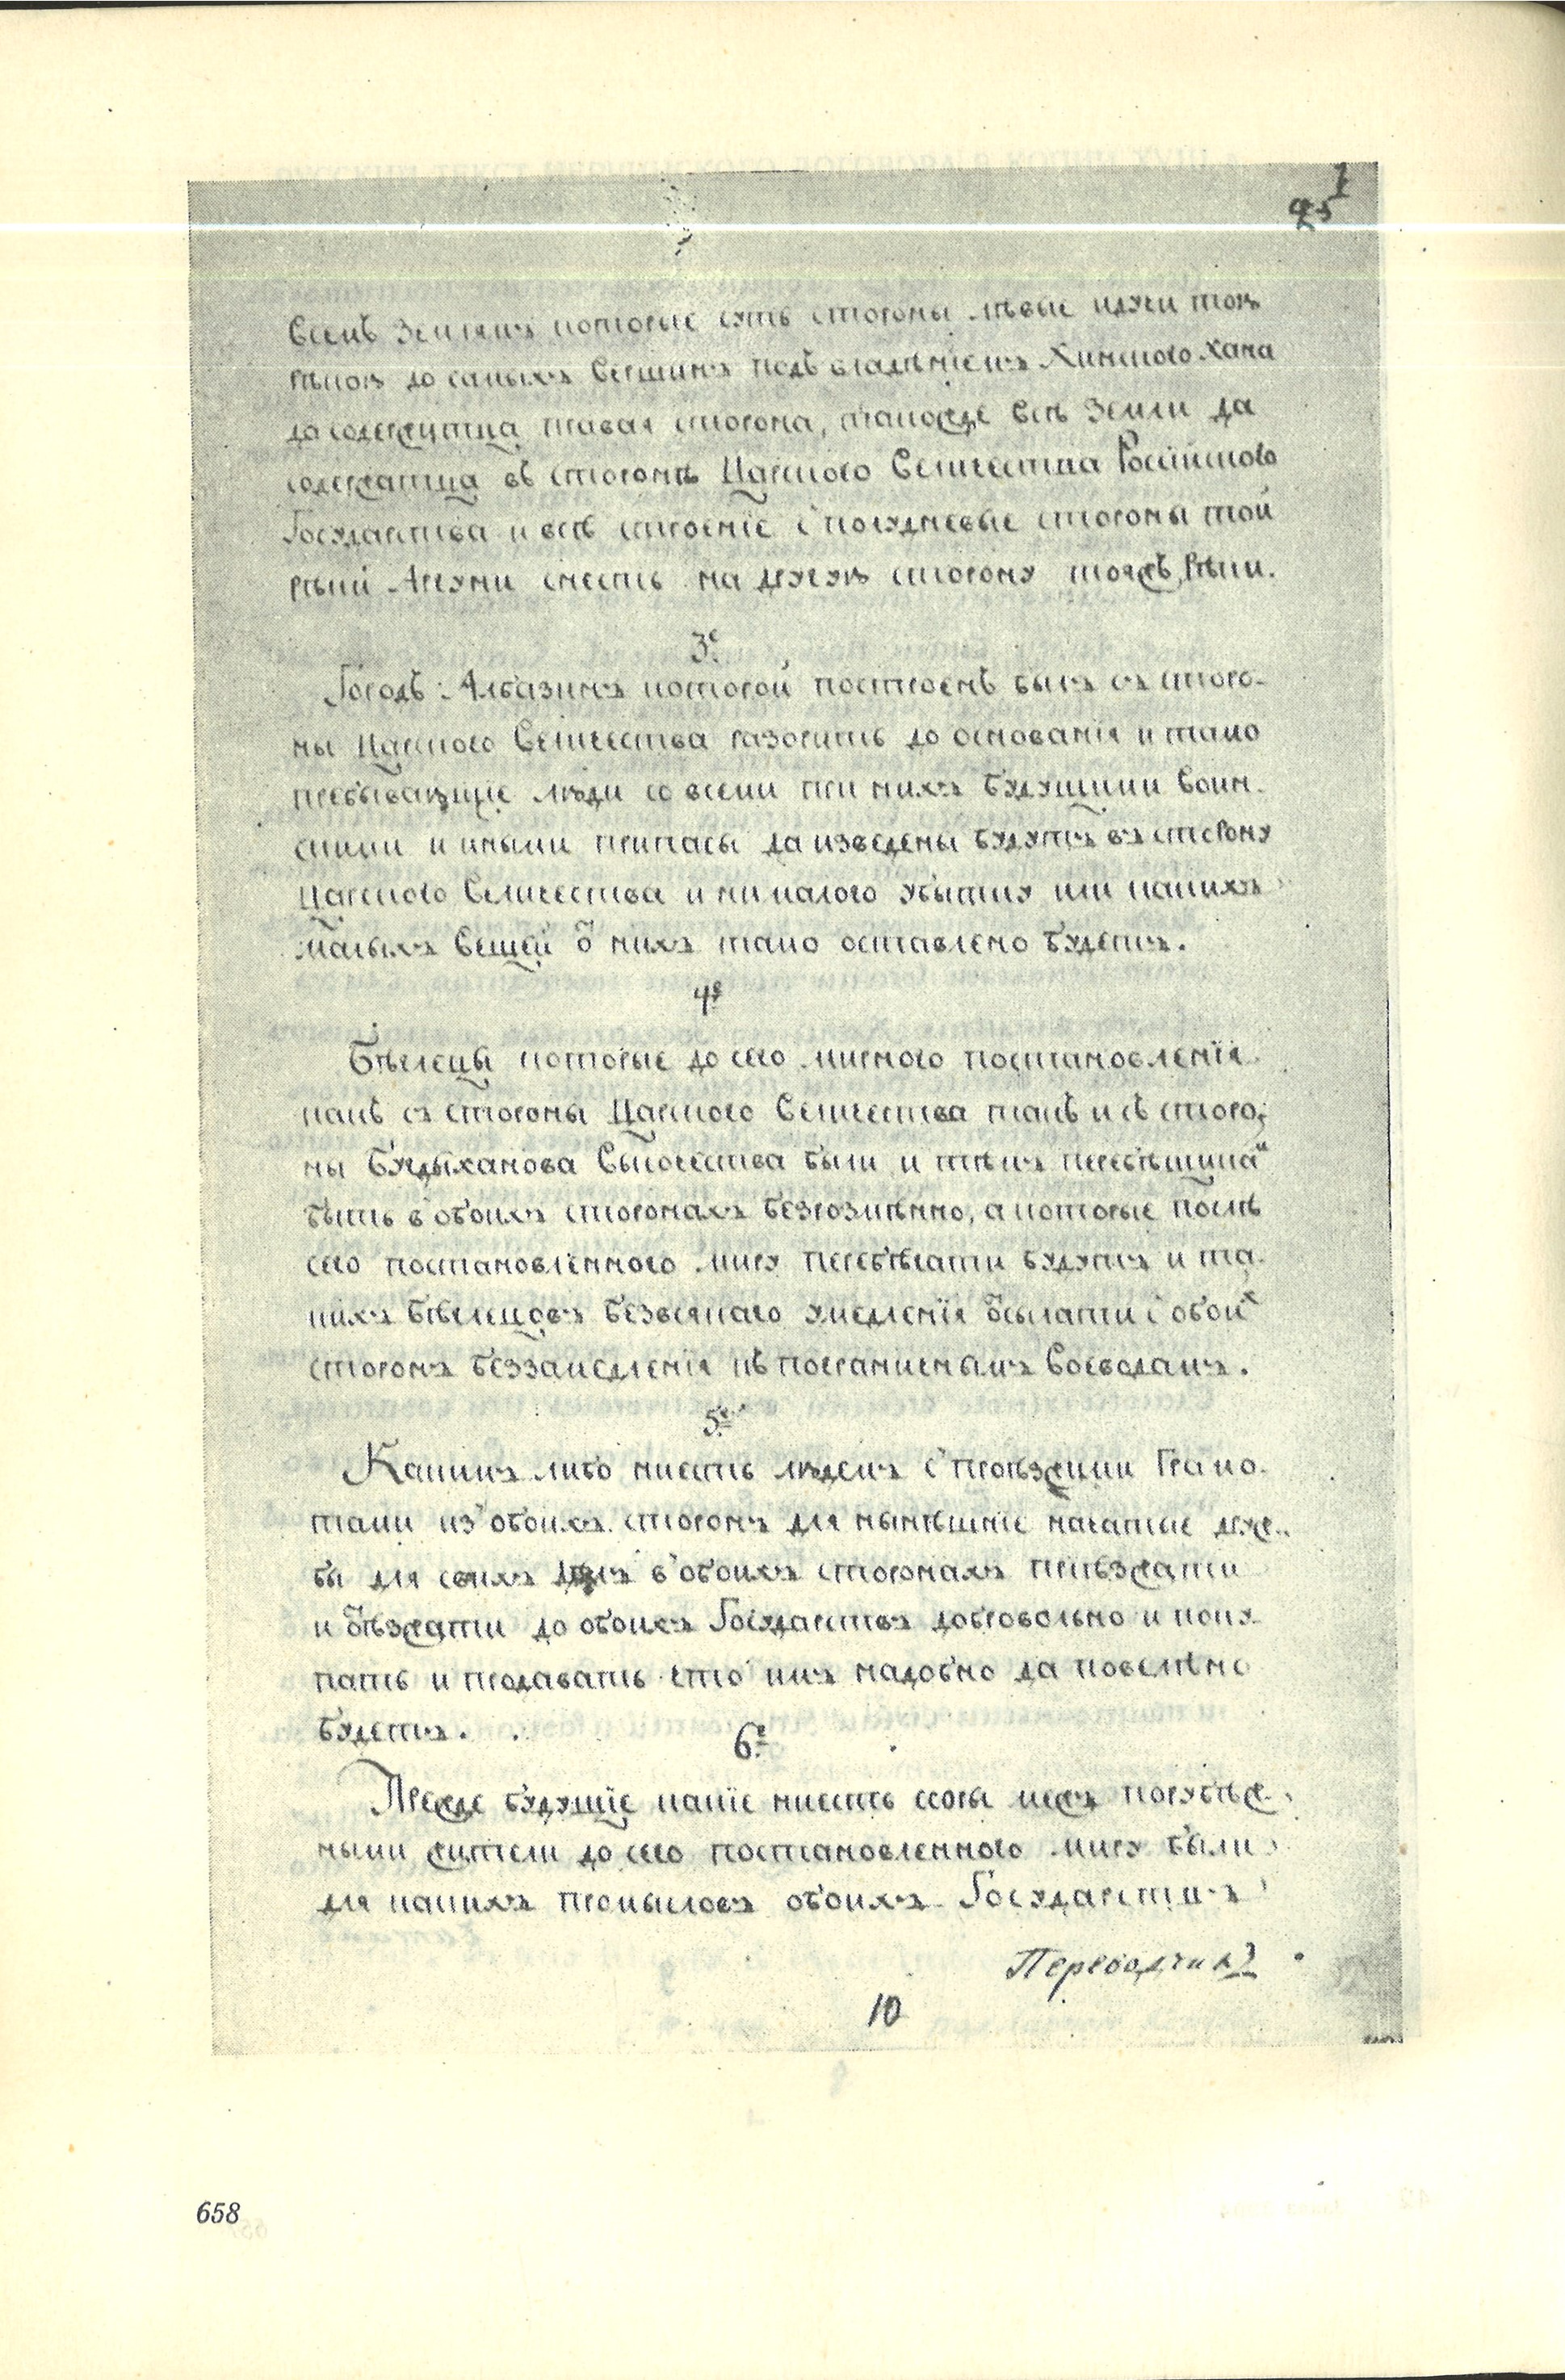 7
25
всемъ землямъ которые суть стороны лѣвые идучи тою
рѣкою до самыхъ вершинъ подъ владѣніемъ Хинского хана
да содержитца правая сторона, такожде всѣ земли да
содержатца въ сторонѣ Царского Величества Россійского
Государства и все строеніе с полудневые стороны той
рѣки Аргуни снесть на другую сторону тояжъ рѣки.
3е
Городъ Албазинъ которой построенъ былъ съ сторо-
ны Царского Величества разорить до основанія и тамо
пребывающіе люди со всеми при нихъ будущими воин-
скими и иными припасы да изведены будутъ въ сторону
Царского Величества и ни малого убытку или какихъ
малыхъ вещей ѿ нихъ тамо оставлено будетъ.
4е
Бѣглецы которые до сего мирного постановленія
какъ съ стороны Царского Величества такъ и съ сторо-
ны Бугдыханова Высочества были и тѣмъ перебѣщика
быть в обоихъ сторонахъ безрозмѣнно, а которые послѣ
сего постановленного миру перебѣгати будутъ и та-
кихъ бѣглецовъ безвсякаго умедленія ѿсылати с обои х
сторонъ беззамедленія къ пограничнымъ воеводамъ.
5е
Какимъ либо ниесть людемъ с проѣзжими грамо-
тами из обоихъ сторонъ для нынѣшніе начатые друж-
бы для своихъ дѣлъ в обоихъ сторонахъ приѣзжати
и ѿѣзжати до обоихъ Государствъ добровольно и поку-
пать и продавать что имъ надобно да повелѣно
будетъ.
6е
Прежде будущіе какіе ниесть ссоры межъ порубѣж-
ными жители до сего постановленного миру были
для какихъ промысловъ обоихъ Государствъ
Переводчикъ
10
658